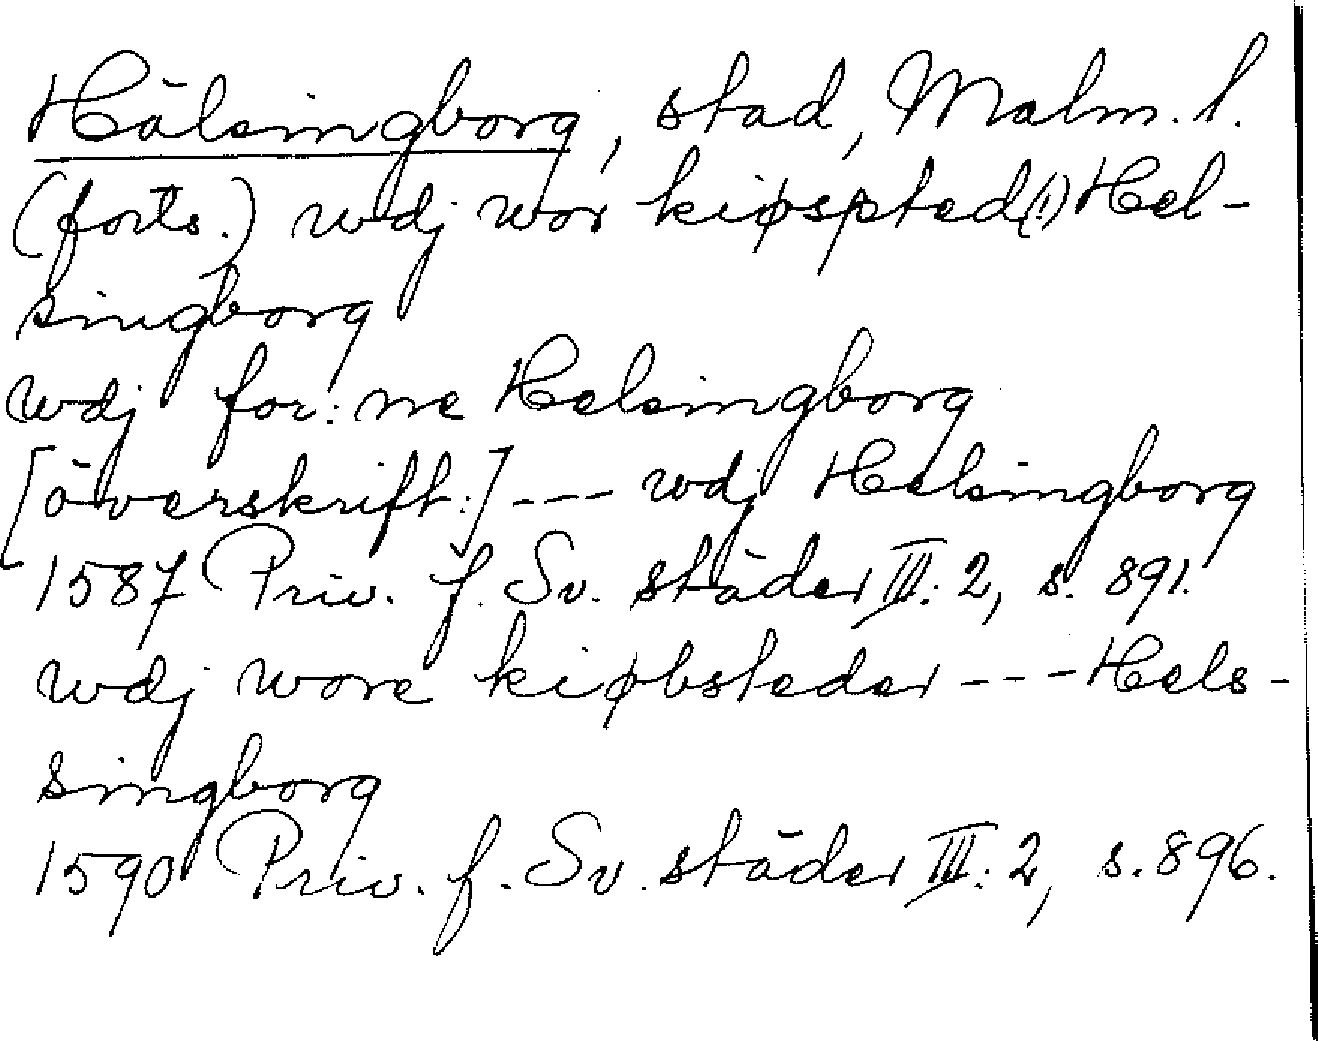 Hälsingborg, stad, Malm. l.
(forts.) wdj wor kiøspted(!) Hel-
singborg
wdj for: ne Helsingborg
[överskrift:] --- wdj Helsingborg
1587 Priv. f. Sv. städer III: 2, s. 891.
wdj wore kiøbsteder --- Hels-
singborg
1590 Priv. f. Sv. städer III: 2, s. 896.